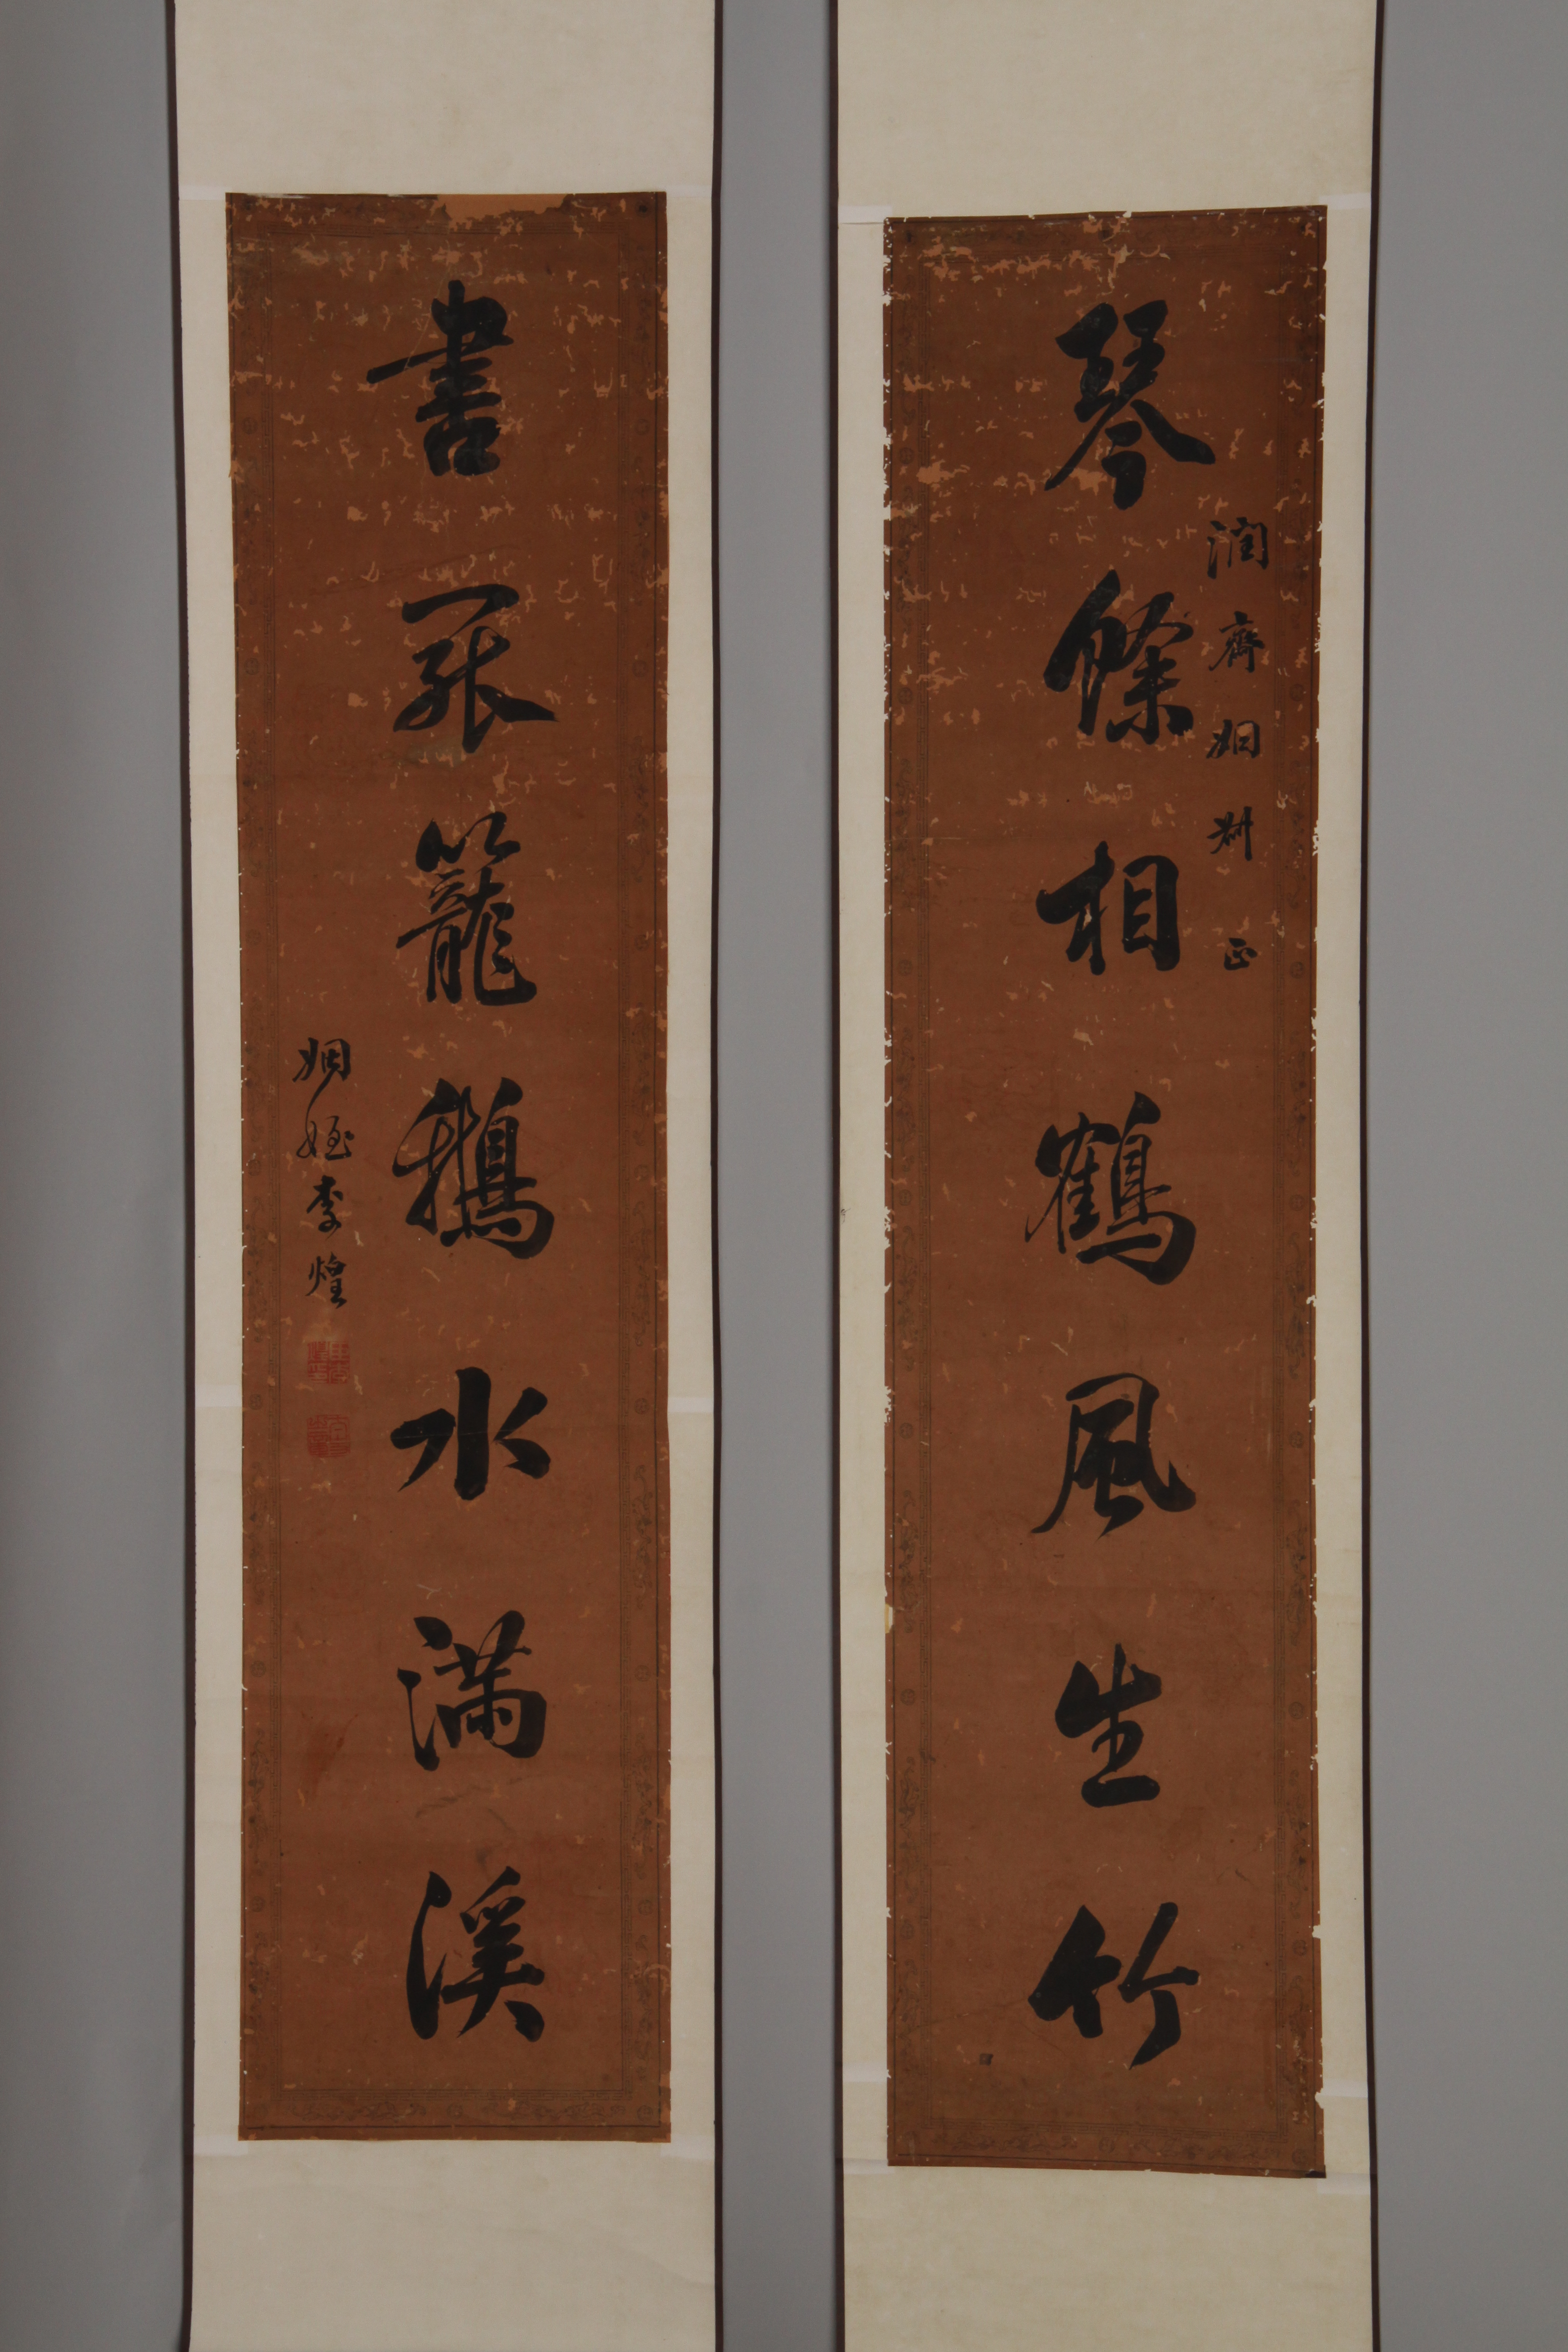 琴餘相鶴風生竹
潤齋姻叔正
書罷籠鵝水滿溪
姻姪李煌